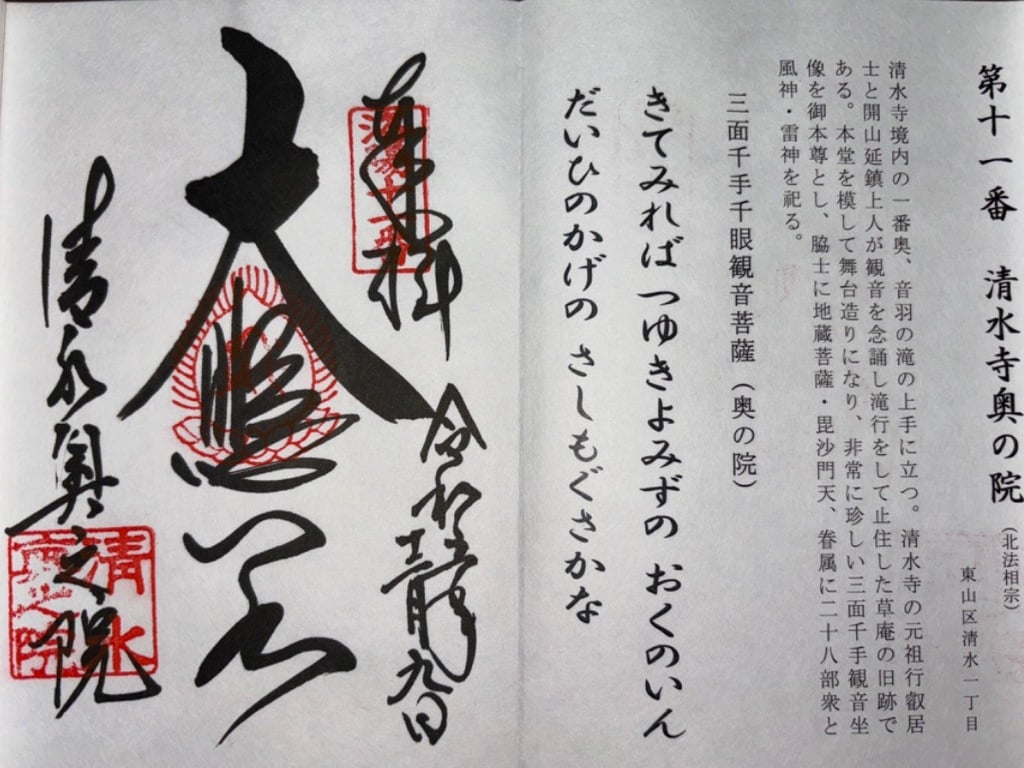 第十一番　清水寺奥の院（北法相宗）
東山区清水一丁目
清水寺境内の一番奥、音羽の滝の上手に立つ。清水寺の元祖行叡居
士と開山延鎮上人が観音を念誦し滝行をして止住した草庵の旧跡で
ある。本堂を模して舞台造りになり、非常に珍しい三面千手観音坐
像を御本尊とし、脇士に地蔵菩薩・毘沙門天、眷属に二十八部衆と
風神・雷神を祀る。
三面千手千眼観音菩薩（奥の院）
きてみれば つゆきよみずの おくのいん
だいひのかげの さしもぐさかな
奉拝
令和
九日
大悲
清水奥之院
清水
奥院